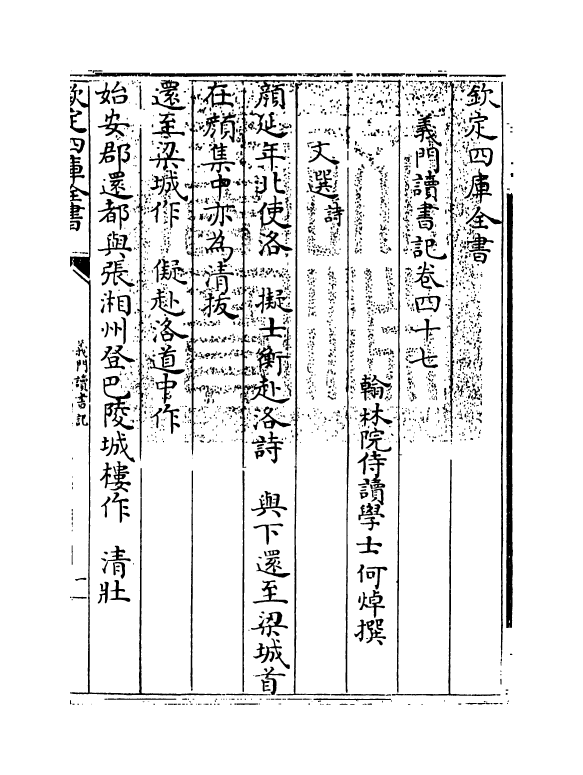 欽定四庫全書
義門讀書記卷四十七
翰林院侍讀學士何焯撰
文選詩
顔延年北使洛 擬士衡赴洛詩 與下還至梁城首
在顔集中亦為清拔
還至梁城作 儗赴洛道中作
始安郡還都與張湘州登巴陵城樓作 清壯
欽定四庫全書
義門讀書記